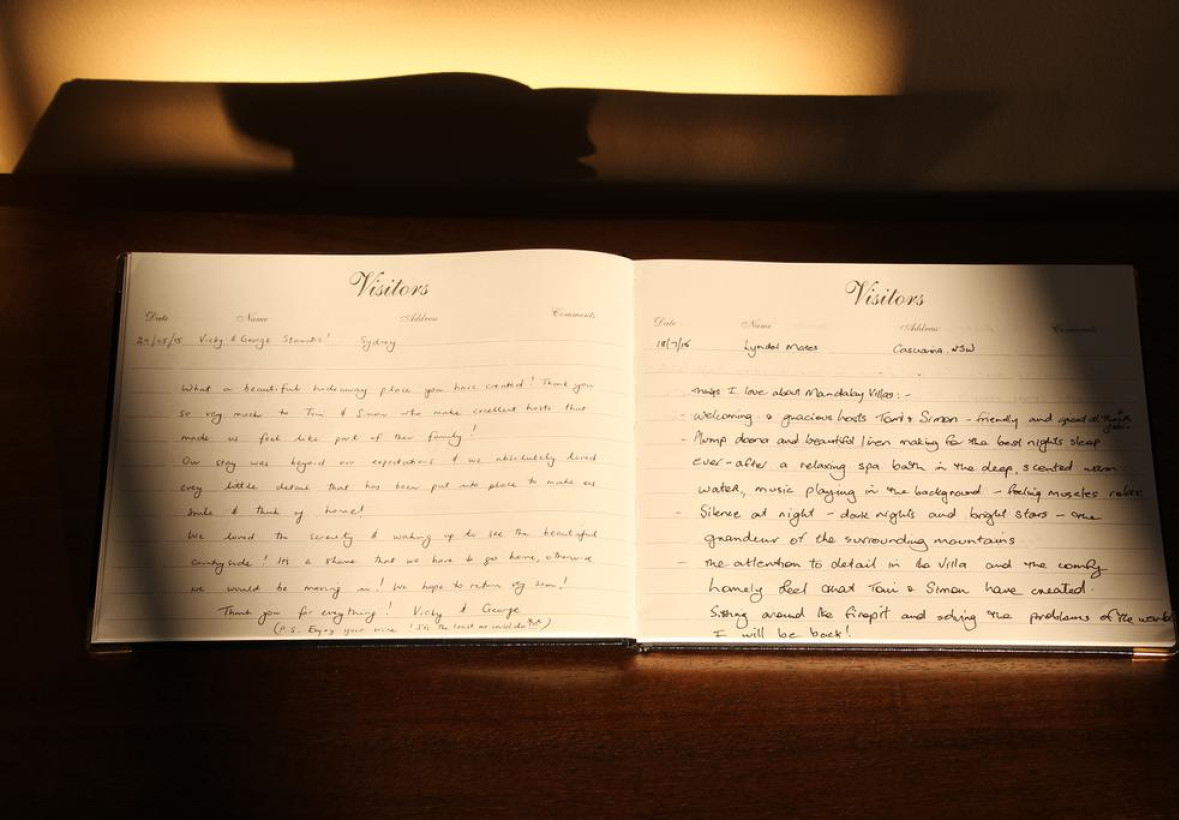 Visitors
Date Name Address Comments
Vicky & George Sydney
What a beautiful hideaway place you have created! Thank you
so very much to Toni & Simon who make excellent hosts that
made us feel like part of their family!
Our stay was beyond our expectations & we absolutely loved
every little detail that has been put into place to make us
smile & think of home!
We loved the serenity & waking up to see the beautiful
countryside! It's a shame that we have to go home, otherwise
we would be moving in! We hope to return very soon!
Thank you for everything! Vicky & George
(P.S. Enjoy your wine 'Tis the least we could do)
Visitors
Date Name Address Comments
18/7/16 Lyndal Casuarina, NSW
Things I love about Mandalay Villas:-
- Welcoming & gracious hosts Toni & Simon - friendly and great
- Plump doona and beautiful linen making for the best nights sleep
ever - after a relaxing spa bath in the deep, scented warm
water, music playing in the background - feeling muscles relax.
- Silence at night - dark nights and bright stars - the
grandeur of the surrounding mountains
- The attention to detail in the Villa and the comfy
homely feel that Toni & Simon have created.
Sitting around the firepit and solving the problems of the world
I will be back!